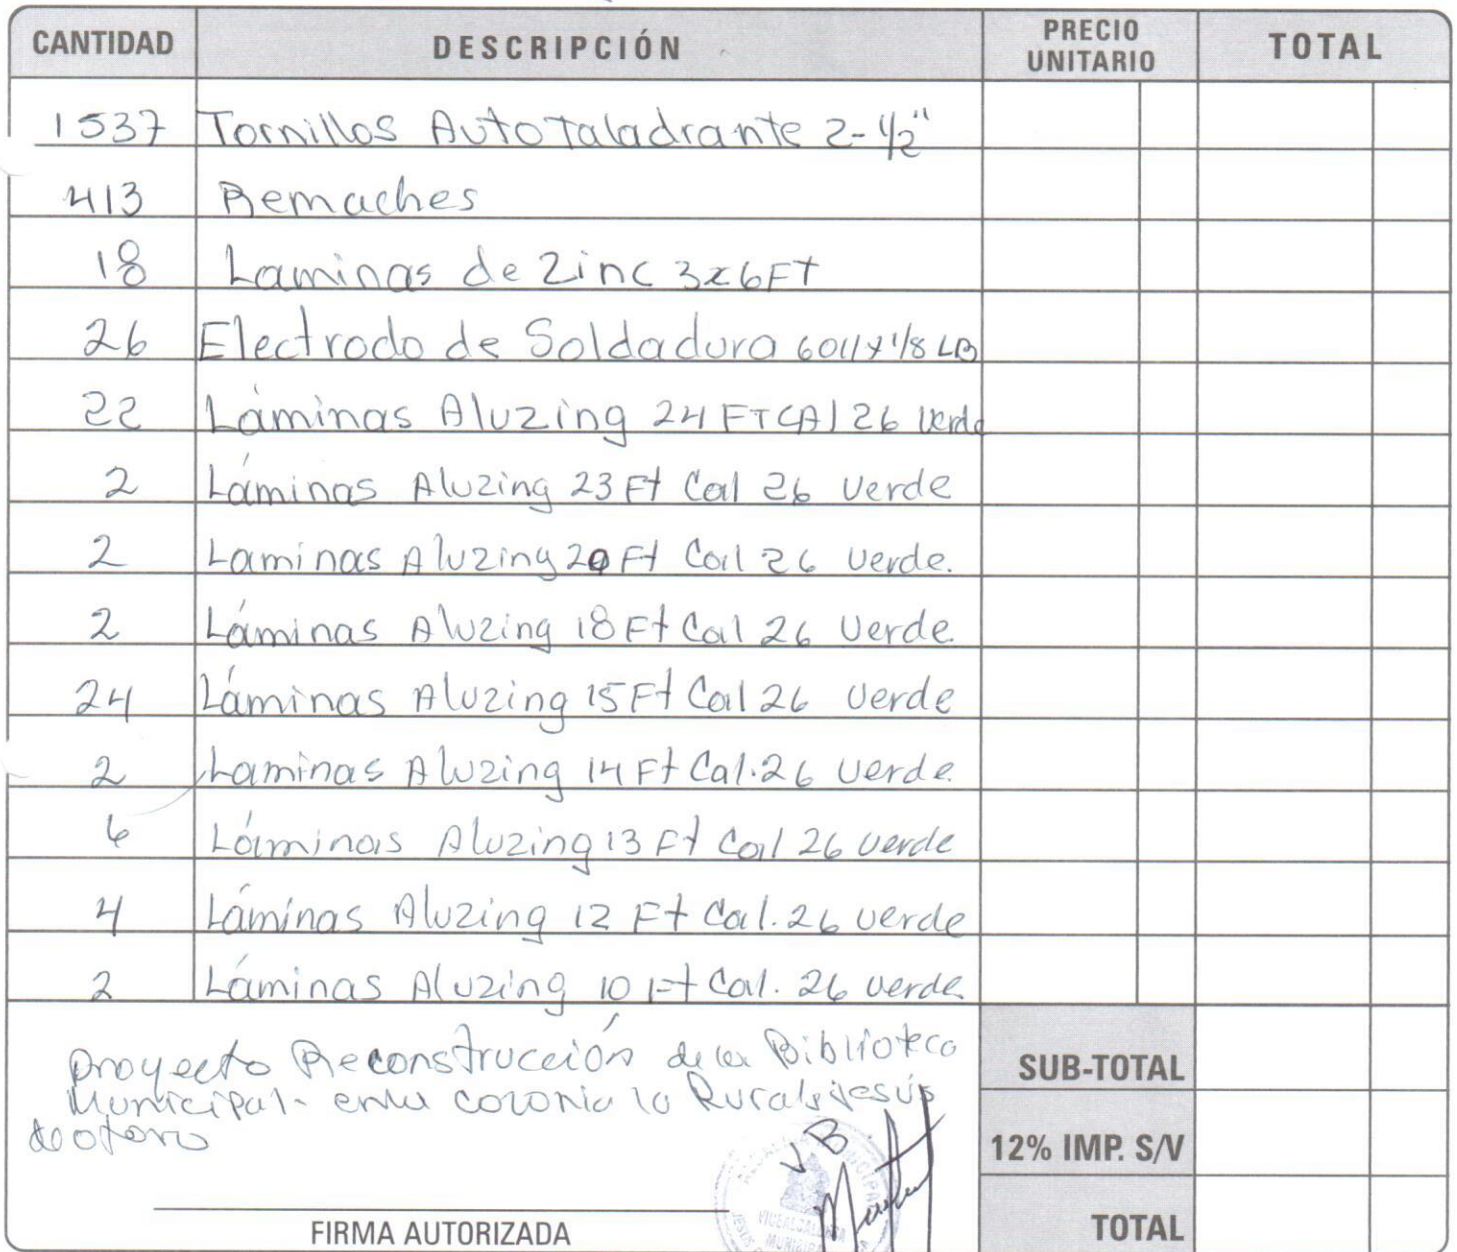 CANTIDAD DESCRIPCIÓN PRECIO UNITARIO TOTAL
1537 Tornillos Autotaladrante 2-1/2"
413 Remaches
18 Laminas de Zinc 3x6FT
26 Electrodo de Soldadura 6011x1/8 LB
22 Láminas Aluzing 24 FT CAl 26 verde
2 Láminas Aluzing 23 Ft Cal 26 verde
2 Laminas Aluzing 20 Ft Cal 26 verde.
2 Láminas Aluzing 18 Ft Cal 26 verde.
24 Láminas Aluzing 15 Ft Cal 26 verde
2 Laminas Aluzing 14 Ft Cal. 26 verde.
6 Láminas Aluzing 13 Ft Cal 26 verde
4 Láminas Aluzing 12 Ft Cal. 26 verde
2 Láminas Aluzing 10 Ft Cal. 26 verde.
Proyecto Reconstrucción de la Biblioteca
Municipal- en la colonia la Rural Jesús
de otoro
SUB-TOTAL
12% IMP. S/V
TOTAL
VB
FIRMA AUTORIZADA